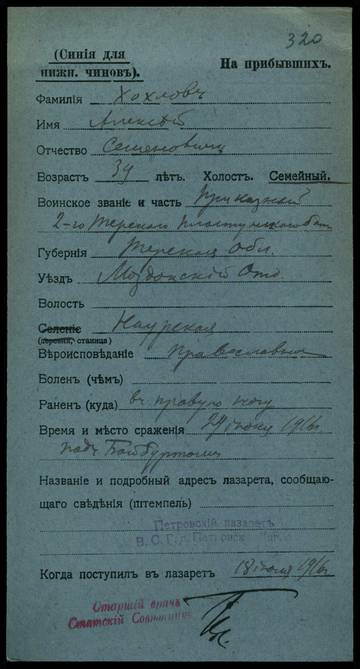 320
(Синія для
нижн. чиновъ).
На прибывшихъ.
Фамилія Хохловъ
Имя Алексѣй
Отчество Семеновичъ
Возрастъ 34 лѣтъ. Холост. Семейный.
Воинское званіе и часть Приказный
2-го Терскаго Пластунскаго бат
Губернія Терская Обл.
Уѣздъ Моздокскій Отд.
Волость
Селеніе Наурская
(деревня, станица)
Вѣроисповѣданіе православный
Боленъ (чѣмъ)
Раненъ (куда) въ правую ногу
Время и мѣсто сраженія 29 іюня 1916
подъ Байбуртомъ
Названіе и подробный адресъ лазарета, сообщаю-
щаго свѣдѣнія (штемпель)
Петровскій лазаретъ
В. С. Г. Петровск
Когда поступилъ въ лазаретъ 18 іюля 1916
Старшій врачъ
Статскій Совѣтникъ